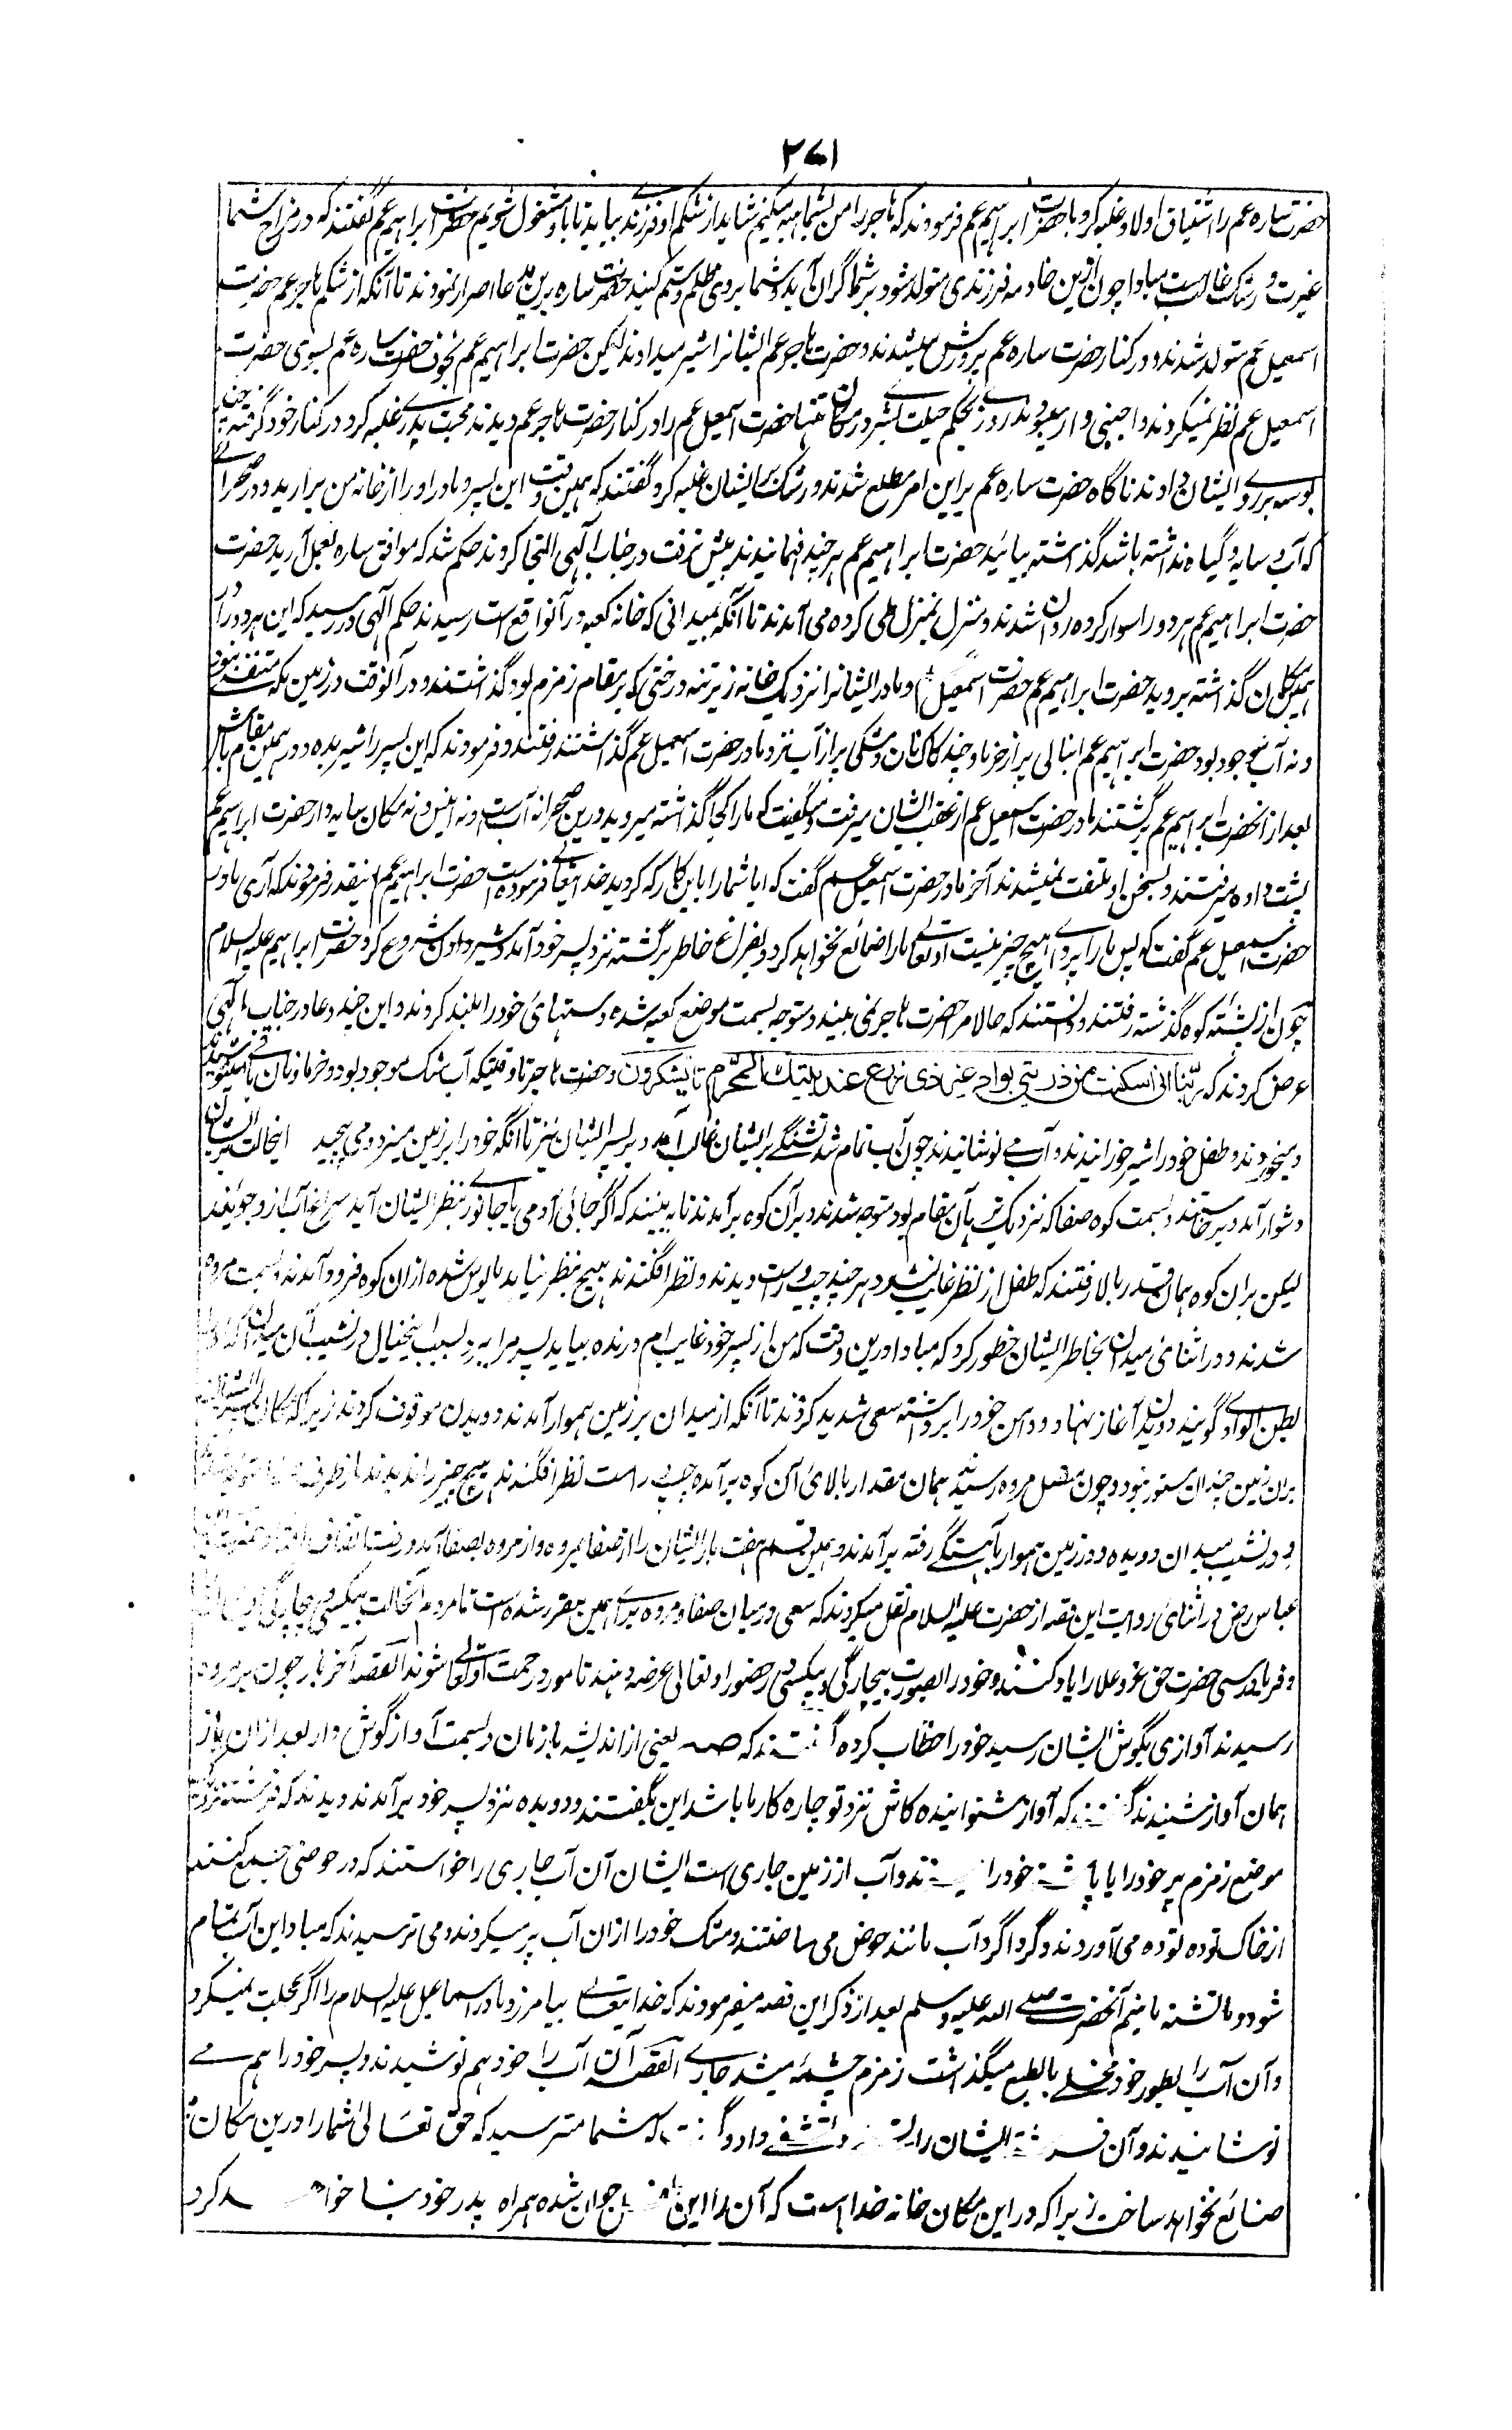 ۲۷۱
حضرت ساره عم را اشتیاق اولاد غلبه کرد با حضرت ابراهیم عم فرمودند که هاجر را من بشما هبه میکنم شاید از شکم او فرزندے بیاید تا با و مشغول شویم حضرت ابراهیم عم گفتند که در مزاج شما
غیرت و رشک غالب است مبادا چون ازین خادمه فرزندی متولد شود بر شما گران آید و شما بر وی ظلم و ستم کنید حضرت ساره برین مدعا اصرار نمودند تا آنکه از شکم هاجر عم حضرت
اسمعیل عم متولد شدند و در کنار حضرت ساره عم پرورش میشدند و حضرت هاجر عم ایشانرا شیر میدادند لیکن حضرت ابراهیم عم بخوف حضرت ساره عم بسوی حضرت
اسمعیل عم نظر نمیکردند و اجنبی وار میبودند روزے بحکم جبلت بشر در مکان تنها حضرت اسمعیل عم را در کنار حضرت هاجر عم دیدند محبت پدرے غلبه کرد در کنار خود گرفته
بوسه بر روے ایشان دادند ناگاه حضرت ساره عم براین امر مطلع شدند و رشک بر ایشان غلبه کرد گفتند که همین وقت این پسر و مادر او را از خانه من برارید و در صحراے
که آب و سایه و گیاه نداشته باشد گذاشته بیائید حضرت ابراهیم عم هر چند فهمانیدند پیش نرفت در جناب الهی التجا کردند حکم شد که موافق ساره بعمل آرید حضرت
حضرت ابراهیم عم هر دو را سوار کرده روان شدند و منزل بمنزل طی کرده می آمدند تا آنکه بمیدانی که خانه کعبه در آنواقع است رسیدند حکم الهی در رسید که این هر دو را
همین مکان گذاشته بروید حضرت ابراهیم عم حضرت اسمعیل و مادر ایشانرا نزدیک خانه زیر تنه درختی که بر مقام زمزم بود گذاشتند و در آنوقت در زمین مکه متنفسے نبود
و نه آب موجود بود حضرت ابراهیم عم انبانی پر از خرما و چند کاک نان و مشکی پر از آب نزد مادر حضرت اسمعیل عم گذاشتند رفتند و فرمودند که این پسر را شیر بده و در همین مقام باش
بعد ازان حضرت ابراهیم عم برگشتند مادر حضرت اسمعیل عم از عقب ایشان میرفت و میگفت که ما را کجا گذاشته میروید درین صحرا نه آب است و نه انیس و نه مکان سایه دار حضرت ابراهیم عم
پشت داده میرفتند و بسخن او ملتفت نمیشدند آخر مادر حضرت اسمعیل عم گفت که ایا شما را باین کار که کردید خدایتعالے فرموده است حضرت ابراهیم عم اینقدر فرمودند که آری مادر
حضرت اسمعیل عم گفت که پس ما را پرواے هیچ چیز نیست او تعالے ما را ضائع نخواهد کرد و بفراغ خاطر برگشته نزد پسر خود آمد و شیر دادن شروع کرد حضرت ابراهیم علیه السلام
چون از پشته کوه گذشته رفتند و دانستند که حالا مرا حضرت هاجر نمی بیند متوجه بسمت موضع کعبه شده دستهای خود را بلند کردند و این چند دعا در جناب الهی
عرض کردند که ربنا انی اسکنت من ذریتی بواد غیر ذی زرع عند بیتک المحرم تا یشکرون و حضرت هاجر تا وقتیکه آب مشک موجود بود و خرما و نان باقی
میخوردند و طفل خود را شیر خورانیدند و آب مے نوشانیدند چون آب تمام شد تشنگے بر ایشان غالب آمد و بر پسر ایشان نیز تا آنکه خود را بر زمین میزد و می پیچید اینحالت بر ایشان
دشوار آمد و برخاستند و بسمت کوه صفا که نزدیک تر بآن مقام بود متوجه شدند و بر آن کوه برآمدند تا به بینند که اگر جائی آدمی یا جانورے بنظر ایشان آید سراغ آب از و جویند
لیکن بران کوه همان قدر بالا رفتند که طفل از نظر غائب نشود هر چند چپ و راست دیدند و نظر افگندند هیچ بنظر نیامد مایوس شده ازان کوه فرود آمدند و بسمت مروه
شدند و در اثنای میدان بخاطر ایشان خطور کرد که مبادا درین وقت که من از پسر خود غایب ام درنده بیاید پسر مرا ببرد بسبب اینخیال در نشیب آن میدان که
بطن الوادے گویند دویدن آغاز نهاد و دامن خود را برداشته سعی شدید کردند تا آنکه از میدان بر زمین هموار آمدند دویدن موقوف کردند زیرا که مکان
بران زمین چندان مستور نبود و چون متصل مروه رسیدند همان مقدار بالای آن کوه برآمده چپ و راست نظر افگندند هیچ چیز را ندیدند باز طرف
و در نشیب میدان دویده و در زمین هموار باهستگے رفته برآمدند و همین قسم هفت بار ایشان را از صفا بمروه و از مروه بصفا آمد و رفت اتفاق افتاد
عباس رض در اثنای روایت این قصه از حضرت علیه السلام نقل میکردند که سعی در میان صفا و مروه براے همین مقرر شده است تا مردم آنحالت بیکسی و بیچارگی
و فریادرسی حضرت حق عز و علا را یاد کنند و خود را بصورت بیچارگی و بیکسی در حضور او تعالی عرضه دهند تا مورد رحمت او تعالے شوند القصه آخر بار چون بر مروه
رسیدند آوازی بگوش ایشان رسید خود را خطاب کرده گفتند که صه یعنی از اندیشه باز مان و بسمت آواز گوش دار بعد ازان باز
همان آواز شنیدند گفتند که آواز شنوانیده کاش نزد تو چاره کار ما باشد این بگفتند و دویده نزد پسر خود برآمدند دیدند که فرشته نزدیک
موضع زمزم پر خود را یا پاشنه خود را زدند و آب از زمین جاری است ایشان آن آب جاری را خواستند که در حوضی جمع کنند
از خاک توده توده می آوردند و گرداگرد آب مانند حوض می ساختند و مشک خود را ازان آب پر میکردند و می ترسیدند که مبادا این آب تمام
شود و ما تشنه مانیم آنحضرت صلے الله علیه و سلم بعد از ذکر این قصه میفرمودند که خدایتعالے بیامرزد مادر اسماعیل علیه السلام را اگر عجلت نمیکرد
و آن آب را بطور خود مخلے بالطبع میگذاشت زمزم چشمه میشد جارے القصه آن آب را خود هم نوشیدند و پسر خود را هم مے
نوشانیدند و آن فرشته ایشان را تشفے داد و گفت که شما مترسید که حق تعالی شما را درین مکان
ضائع نخواهد ساخت زیرا که در این مکان خانه خدا است که آن را این جوان شده همراه پدر خود بنا خواهد کرد